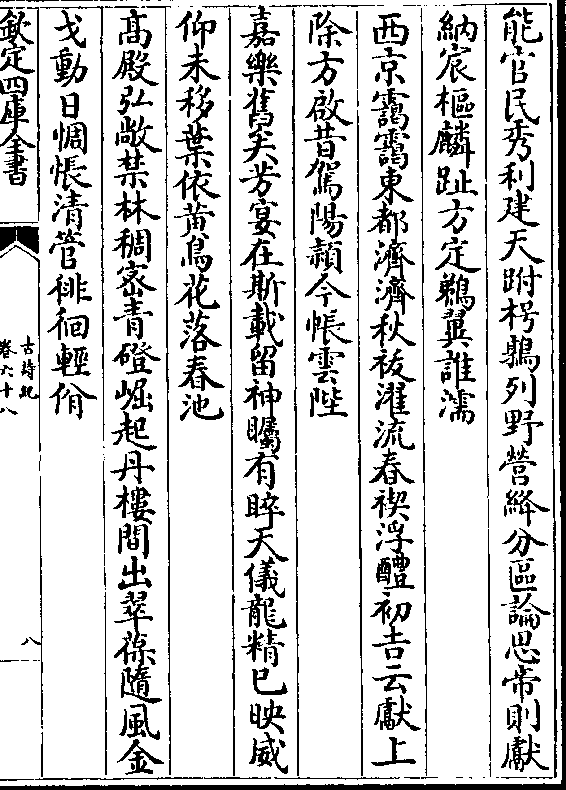 能官民秀利建天跗枵鶉列野營絳分區論思帝則獻
納宸樞麟趾方定鵜翼誰濡
西京靄靄東都濟濟秋祓濯流春禊浮醴初吉云獻上
除方啟昔駕陽潁今帳雲陛
嘉樂舊矣芳宴在斯載留神矚有睟天儀龍精已映威
仰未移葉依黃鳥花落春池
高殿弘敞禁林稠宻青磴崛起丹樓間出翠葆隨風金
戈動日惆悵清管徘徊輕佾
欽定四庫全書
古詩紀
卷六十八
八